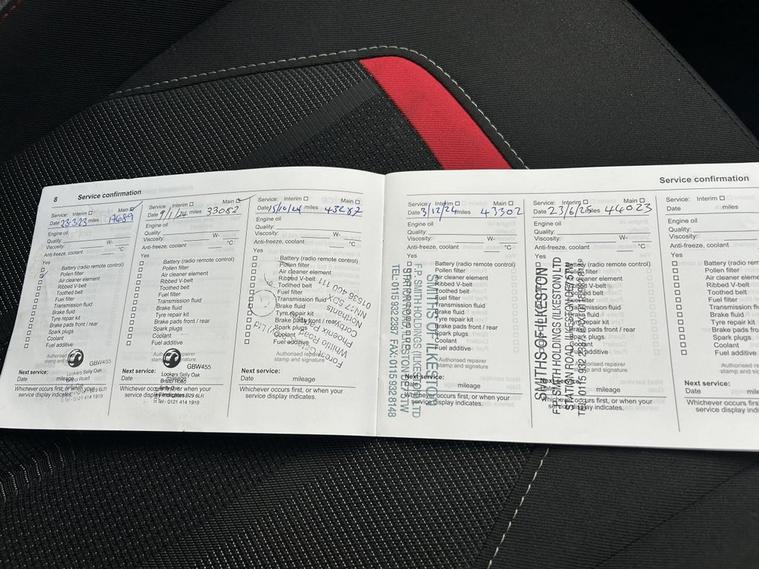 8 Service confirmation
Service: Interim ☐ Main ☑
Date 23.3.23 miles
Engine oil
Quality: W-
Viscosity: °C
Anti-freeze, coolant
Yes
☐ Battery (radio remote control)
☐ Pollen filter
☐ Air cleaner element
☐ Ribbed V-belt
☐ Toothed belt
☐ Fuel filter
☐ Transmission fluid
☐ Brake fluid
☐ Tyre repair kit
☐ Brake pads front / rear
☐ Spark plugs
☐ Coolant
☐ Fuel additive
Authorised
GBW455
Lookers Selly Oak
Next service:
Date mileage
Whichever occurs first, or when your
service display indicates.
0121 414 1919
Service: Interim ☐ Main ☑
Date 9/1/24 miles 33082
Engine oil
Quality: W-
Viscosity: °C
Anti-freeze, coolant
Yes
☐ Battery (radio remote control)
☐ Pollen filter
☐ Air cleaner element
☐ Ribbed V-belt
☐ Toothed belt
☐ Fuel filter
☐ Transmission fluid
☐ Brake fluid
☐ Tyre repair kit
☐ Brake pads front / rear
☐ Spark plugs
☐ Coolant
☐ Fuel additive
GBW455
Lookers Selly Oak
Bristol Road
Next service:
B29 6LF
Tel: 0121 414 1919
Service: Interim ☐ Main ☐
Date miles
Engine oil
Quality: W-
Viscosity: °C
Anti-freeze, coolant
Yes
☐ Battery (radio remote control)
☐ Pollen filter
☐ Air cleaner element
☐ Ribbed V-belt
☐ Toothed belt
☐ Fuel filter
☐ Transmission fluid
☐ Brake fluid
☐ Tyre repair kit
☐ Brake pads front / rear
☐ Spark plugs
☐ Coolant
☐ Fuel additive
Authorised repairer
stamp and signature
Northants
01536 400 111
Next service:
Date mileage
Whichever occurs first, or when your
service display indicates.
Service confirmation
Service: Interim ☐ Main ☐
Date 3/12/24 miles 43302
Engine oil
Quality: W-
Viscosity: °C
Anti-freeze, coolant
Yes
☐ Battery (radio remote control)
☐ Pollen filter
☐ Air cleaner element
☐ Ribbed V-belt
☐ Toothed belt
☐ Fuel filter
☐ Transmission fluid
☐ Brake fluid
☐ Tyre repair kit
☐ Brake pads front / rear
☐ Spark plugs
☐ Coolant
☐ Fuel additive
Authorised repairer
stamp and signature
SMITHS OF ILKESTON
F.P. SMITH HOLDINGS (ILKESTON) LTD
STATION ROAD ILKESTON DE7 5TW
TEL: 0115 932 2387 FAX: 0115 932 8148
Next service:
mileage
Whichever occurs first, or when your
service display indicates.
Service: Interim ☐ Main ☐
Date 23/6/25 miles 44023
Engine oil
Quality: W-
Viscosity: °C
Anti-freeze, coolant
Yes
☐ Battery (radio remote control)
☐ Pollen filter
☐ Air cleaner element
☐ Ribbed V-belt
☐ Toothed belt
☐ Fuel filter
☐ Transmission fluid
☐ Brake fluid
☐ Tyre repair kit
☐ Brake pads front / rear
☐ Spark plugs
☐ Coolant
☐ Fuel additive
Authorised repairer
stamp and signature
SMITHS OF ILKESTON
F.P. SMITH HOLDINGS (ILKESTON) LTD
STATION ROAD ILKESTON DE7 5TW
mileage
occurs first, or when your
display indicates.
Service: Interim ☐
Date miles
Engine oil
Quality:
Viscosity:
Anti-freeze, coolant
Yes
☐ Battery (radio
☐ Pollen filter
☐ Air cleaner
☐ Ribbed V-belt
☐ Toothed belt
☐ Fuel filter
☐ Transmission
☐ Brake fluid
☐ Tyre repair kit
☐ Brake pads
☐ Spark plugs
☐ Coolant
☐ Fuel additive
Authorised
stamp and
Next service:
Date
Whichever occurs first,
service display